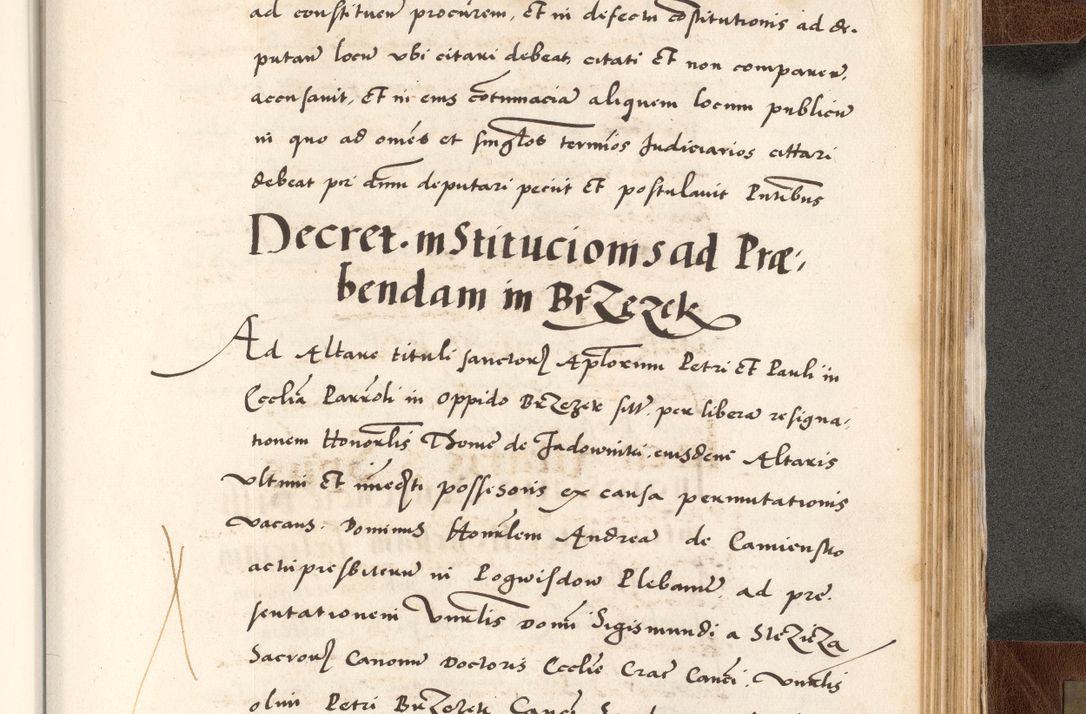 ad constituen̄ procurem, Et in defectu cōstitutionis ad de-
putan̄ locū ubi citari debeat, citati Et non comparen̄,
accusavit, Et in eius cōtumaciā aliquem locum publicū
in quo ad omēs et singlōs termīos Judiciarios cittari
debeat per dnūm deputari peciit Et postulavit Pn̄tibus
Decret. institucionis ad Præ-
bendam in BrZezek
Ad Altare tituli sanctorꝝ Apl̄orum Petri Et Pauli in
Ecclīa Parrōli in oppido BrZezek sitt. per liberā resigna-
tionem Honorl̄is Thome de Jadowniki, eiusdem Altaris
ultimi Et imēdti possessoris ex causa permutationis
vacans. Dominus Honrl̄em Andreā de Camiensko
actu presbiterum in Pogwisdow Plebanū, ad pre-
sentationem Vnrl̄is Domī Sigismundi a SteZicZa
Sacrorꝝ Canonū Doctoris Ecclīe Crac̄ Canci. Vnrl̄is
olim Petri BrZezek Canci